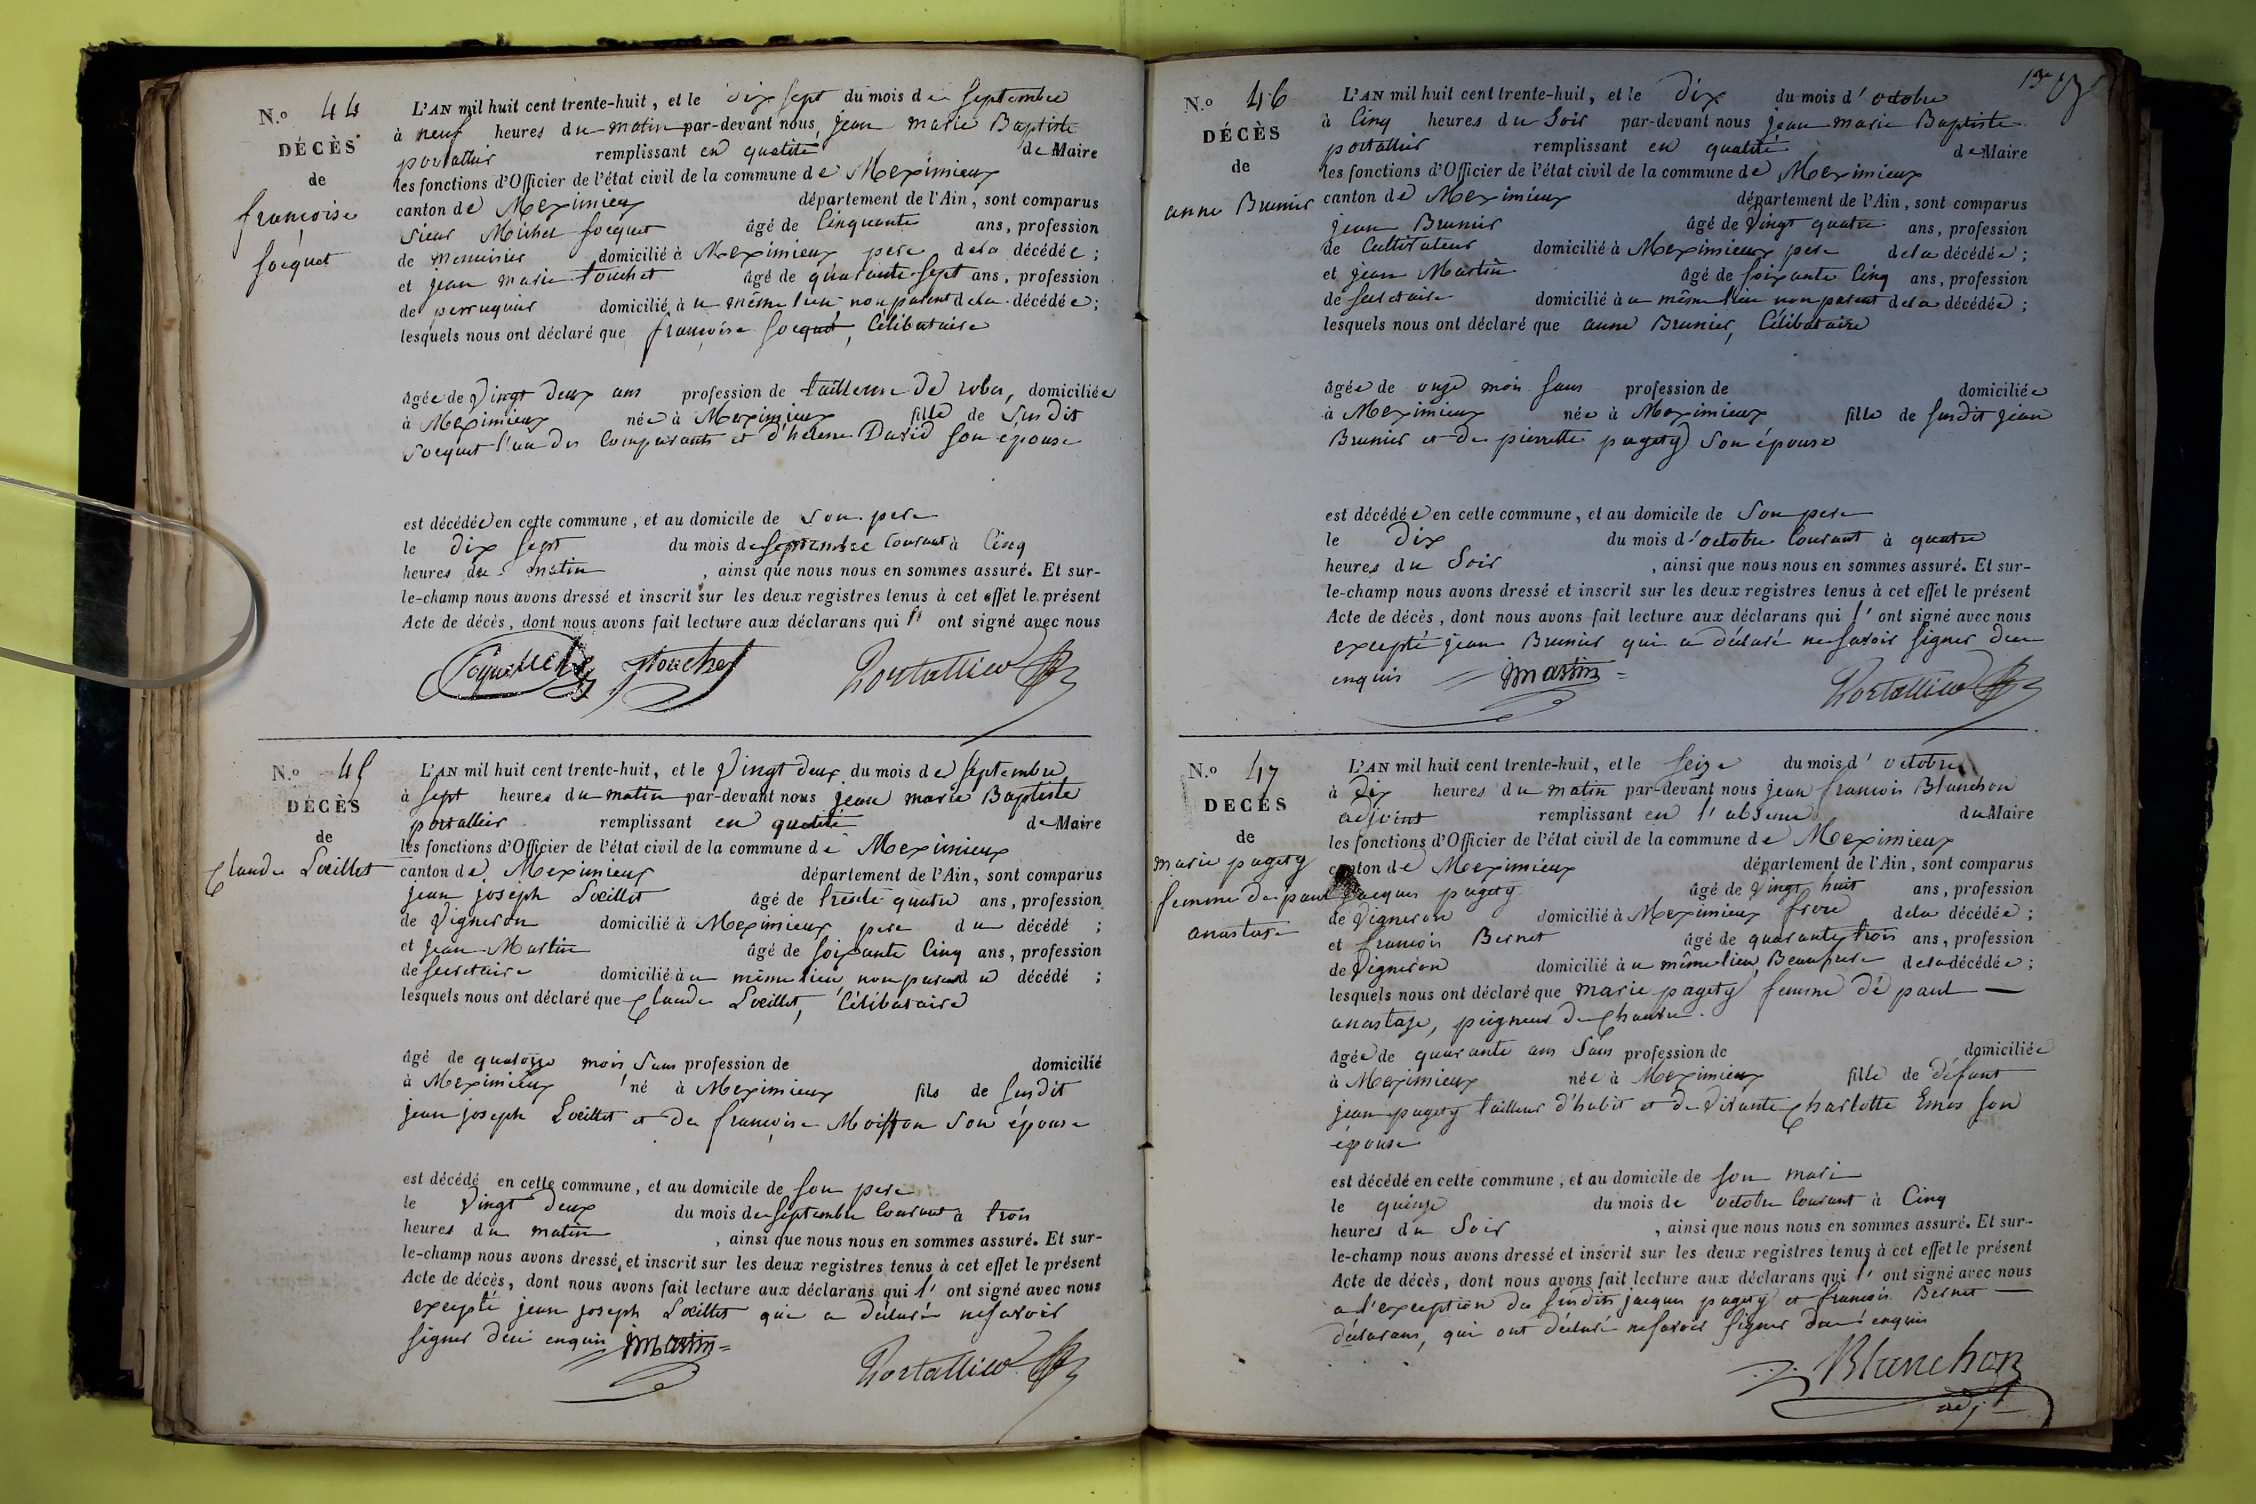 N.º 44
DÉCÈS
de
françoise
Socquet
L'AN mil huit cent trente-huit, et le dix sept du mois de Septembre
à neuf heures du matin par-devant nous, jean marie Baptiste
portallier remplissant en qualité de Maire
les fonctions d'Officier de l'état civil de la commune de Meximieux
canton de Meximieux département de l'Ain, sont comparus
Sieur Michel Socquet âgé de Cinquante ans, profession
de menuisier domicilié à Meximieux pere de la décédée ;
et jean marie touchet âgé de quarante-sept ans, profession
de perruquier domicilié à u même lieu non parent de la décédée ;
lesquels nous ont déclaré que françoise Socquet, Célibataire
âgée de Vingt deux ans profession de tailleuse de robes, domiciliée
à Meximieux née à Meximieux fille de Susdit
Socquet l'un des Comparants et d'hélène David Son épouse
est décédée en cette commune, et au domicile de Son pere
le dix Sept du mois de Septembre Courant à Cinq
heures du matin, ainsi que nous nous en sommes assuré. Et sur-
le-champ nous avons dressé et inscrit sur les deux registres tenus à cet effet le présent
Acte de décès, dont nous avons fait lecture aux déclarans qui l' ont signé avec nous
Touchet Portallier
N.º 45
DÉCÈS
de
Claude Loeillet
L'AN mil huit cent trente-huit, et le Vingt deux du mois de Septembre
à Sept heures du matin par-devant nous jean marie Baptiste
portallier remplissant en qualité de Maire
les fonctions d'Officier de l'état civil de la commune de Meximieux
canton de Meximieux département de l'Ain, sont comparus
jean joseph Loeillet âgé de trente quatre ans, profession
de Vigneron domicilié à Meximieux pere du décédé ;
et jean Martin âgé de Soixante Cinq ans, profession
de Secretaire domicilié à u même lieu, non parent du décédé ;
lesquels nous ont déclaré que Claude Loeillet, Célibataire
âgé de quatorze mois Sans profession de domicilié
à Meximieux né à Meximieux fils de Susdit
jean joseph Loeillet et de françoise Moisson Son épouse
est décédé en cette commune, et au domicile de Son pere
le Vingt deux du mois de Septembre Courant à trois
heures du matin, ainsi que nous nous en sommes assuré. Et sur-
le-champ nous avons dressé et inscrit sur les deux registres tenus à cet effet le présent
Acte de décès, dont nous avons fait lecture aux déclarans qui l' ont signé avec nous
excepté jean joseph Loeillet qui a déclaré ne Savoir
Signer de ce enquis jmartin
Portallier
N.º 46
DÉCÈS
de
anne Brunier
L'AN mil huit cent trente-huit, et le dix du mois d'octobre
à Cinq heures du Soir par-devant nous jean marie Baptiste
portallier remplissant en qualité de Maire
les fonctions d'Officier de l'état civil de la commune de Meximieux
canton de Meximieux département de l'Ain, sont comparus
jean Brunier âgé de Vingt quatre ans, profession
de Cultivateur domicilié à Meximieux pere de la décédée ;
et jean Martin âgé de Soixante Cinq ans, profession
de Secretaire domicilié à u même lieu non parent de la décédée ;
lesquels nous ont déclaré que anne Brunier, Célibataire
âgée de onze mois Sans profession de domiciliée
à Meximieux née à Meximieux fille de Susdit jean
Brunier et de pierrette pagety Son épouse
est décédée en cette commune, et au domicile de Son pere
le Dix du mois d'octobre Courant à quatre
heures du Soir, ainsi que nous nous en sommes assuré. Et sur-
le-champ nous avons dressé et inscrit sur les deux registres tenus à cet effet le présent
Acte de décès, dont nous avons fait lecture aux déclarans qui l' ont signé avec nous
excepté jean Brunier qui a déclaré ne Savoir Signer de ce
enquis jmartin Portallier
N.º 47
DÉCÈS
de
marie pagety
femme de paul
anastase
L'AN mil huit cent trente-huit, et le Seize du mois d'octobre
à Dix heures du matin par-devant nous jean françois Blanchon
adjoint remplissant en l'absence du Maire
les fonctions d'Officier de l'état civil de la commune de Meximieux
canton de Meximieux département de l'Ain, sont comparus
jacques pagety âgé de Vingt huit ans, profession
de Vigneron domicilié à Meximieux frere de la décédée ;
et françois Bernet âgé de quarante trois ans, profession
de Vigneron domicilié à u même lieu, Beaufrere de la décédée ;
lesquels nous ont déclaré que marie pagety femme de paul
anastase, peigneur de Chanvre.
âgée de quarante ans Sans profession de domiciliée
à Meximieux née à Meximieux fille de défunt
jean pagety tailleur d'habit et de Vivante Charlotte Emos Son
épouse
est décédé en cette commune, et au domicile de Son mari
le quinze du mois de octobre Courant à Cinq
heures du Soir, ainsi que nous nous en sommes assuré. Et sur-
le-champ nous avons dressé et inscrit sur les deux registres tenus à cet effet le présent
Acte de décès, dont nous avons fait lecture aux déclarans qui l' ont signé avec nous
a l'exception des Susdits jacques pagety et françois Bernet
déclarans, qui ont déclaré ne Savoir Signer de ce enquis
Blanchon
adjt